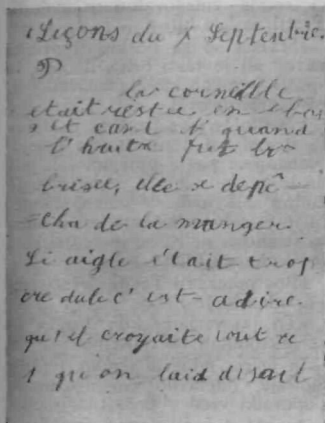 Leçons du x Septembre.
la corneille
etait restée en bas
et quand
l'huitre fut
brisee, elle se depê-
-cha de la manger.
L'aigle était trop
credule c'est-adire
qu'il croyaite tout ce
qu'on laid disait